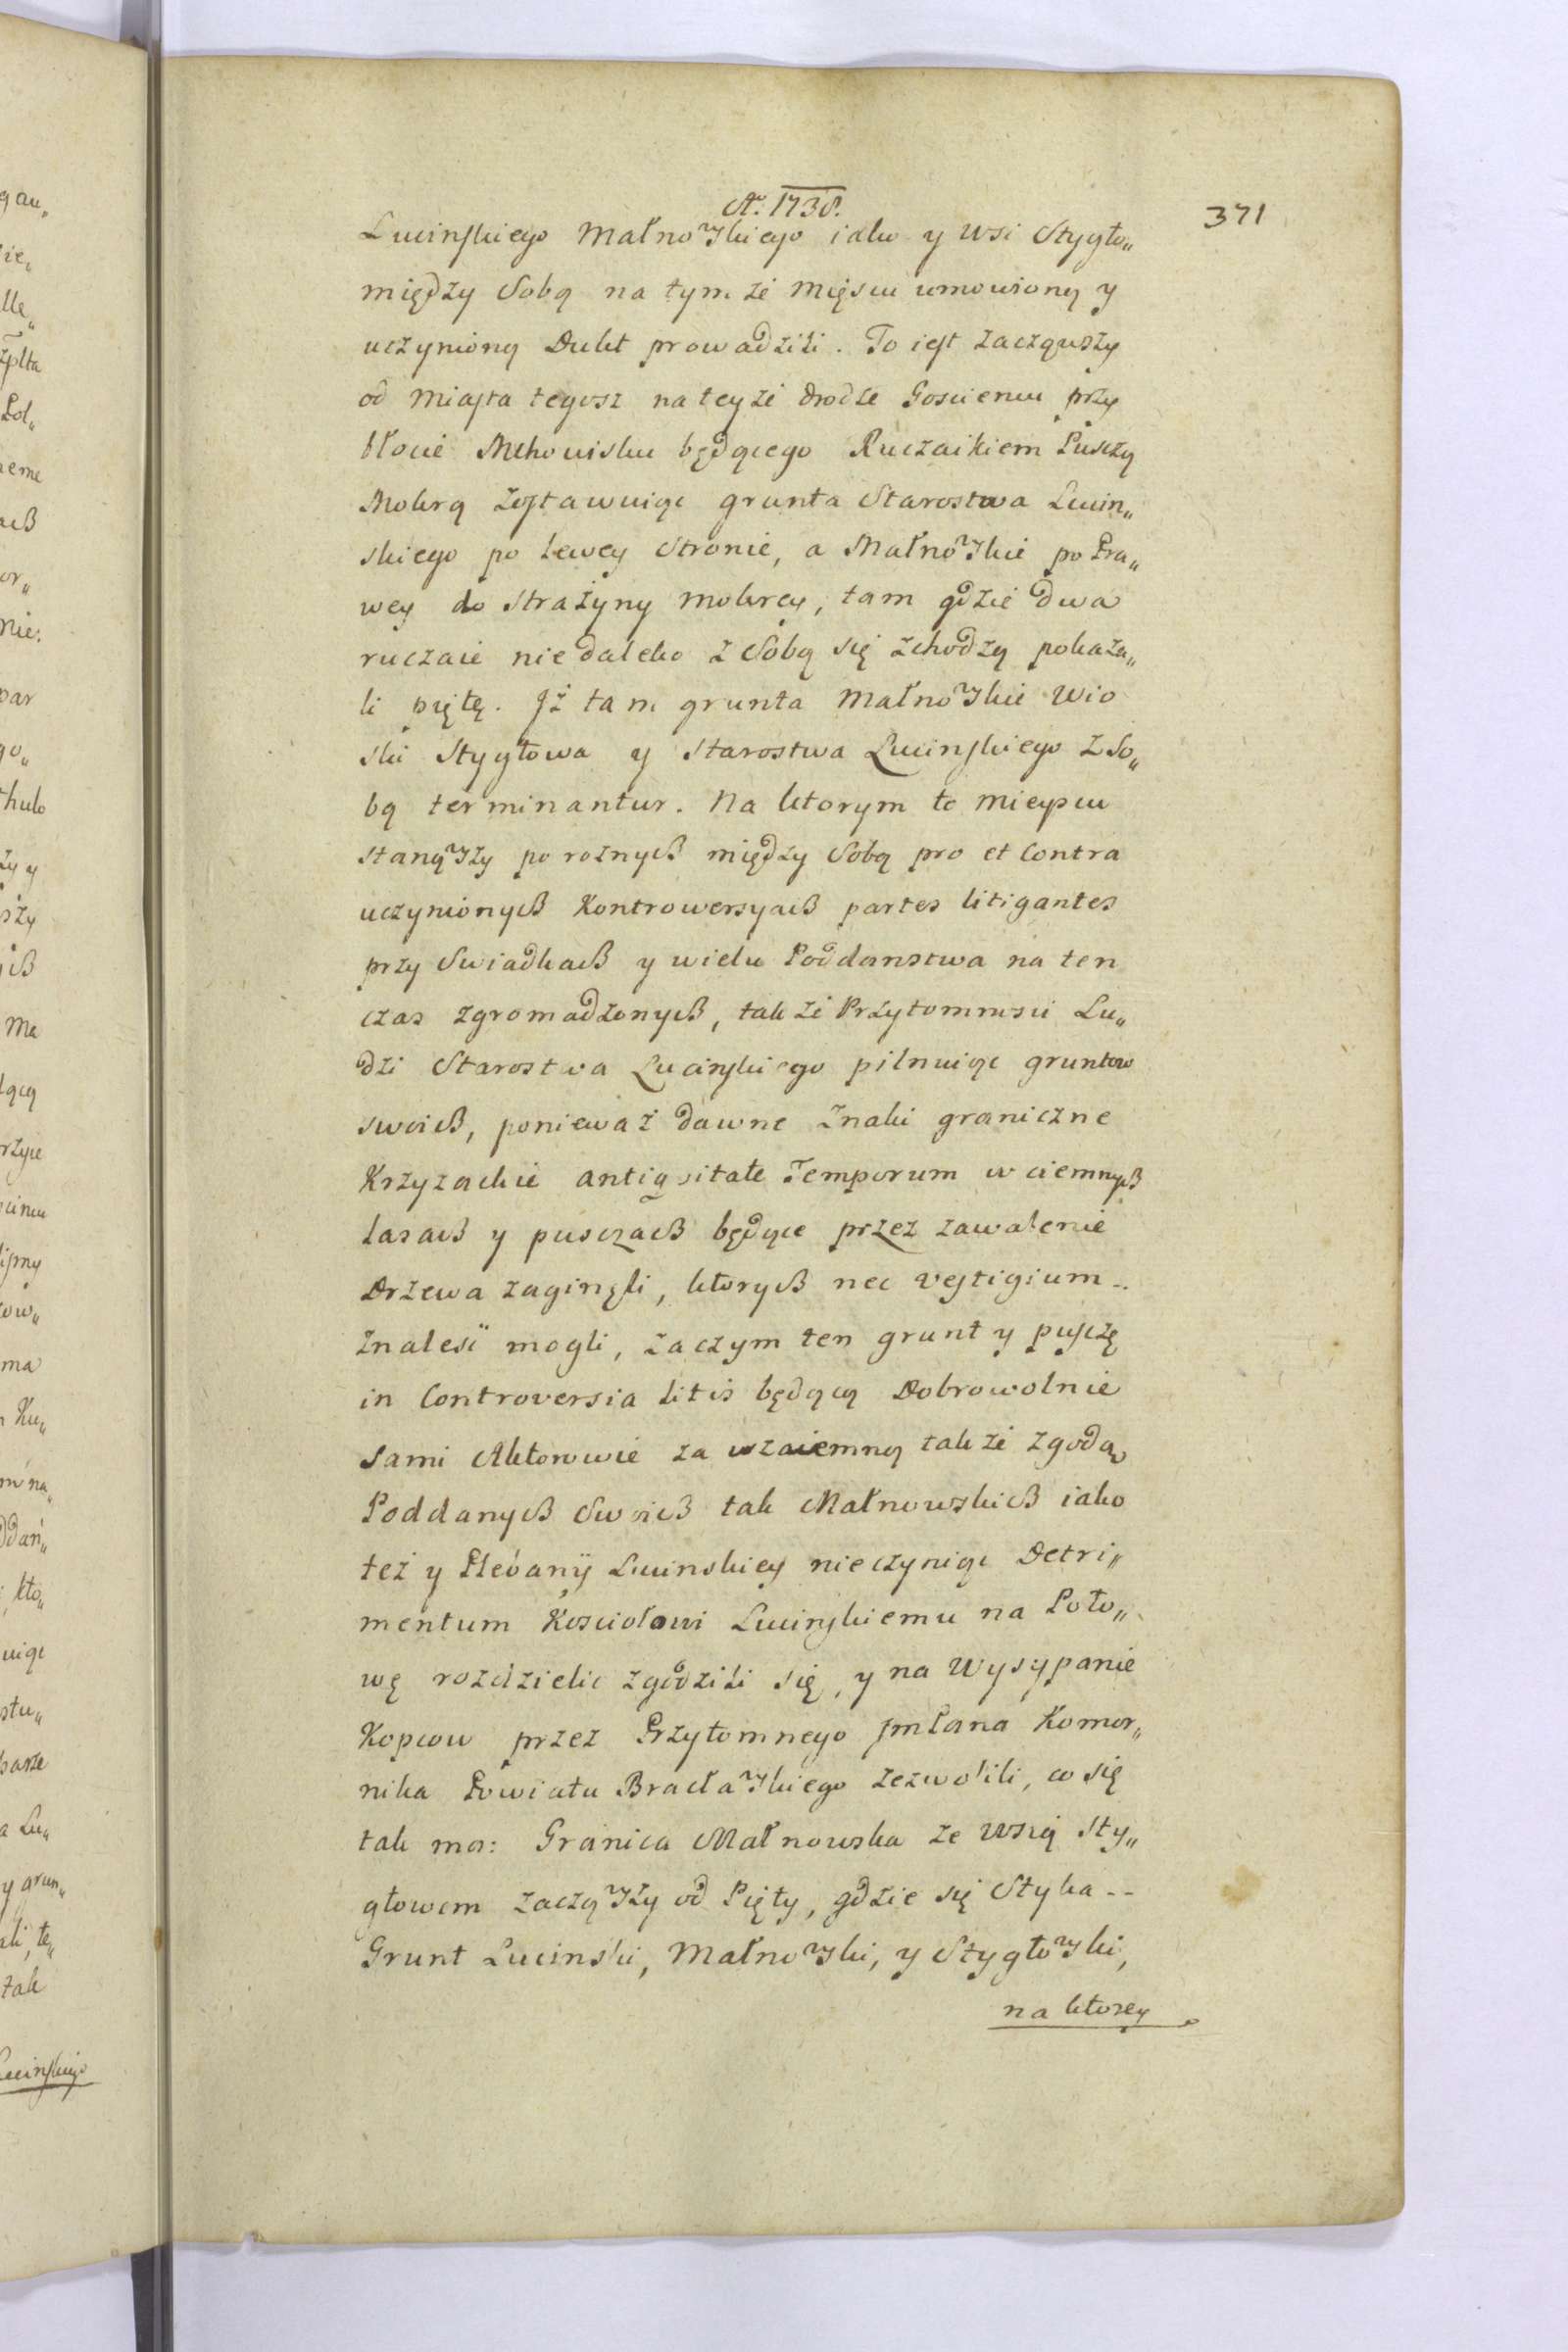 Aº. 1738.
371
Lucinskiego Małnowskiego iako y wsi Stygło„
między Sobą na tymże mięscu umowioną y
uczynioną Dukt prowadzili. To iest zacząwszy
od Miasta tegosz na teyże drodze Goscieniu przy
błocie Mchowisku będącego Ruczaikiem Puszczą
Mokrą zostawuiąc grunta Starostwa Lucin„
skiego po Lewey Stronie, a Małnowskie po Pra„
wey do Strażyny mokrey, tam gdzie dwa
ruczaie niedaleko z Sobą się zchodzą pokaza„
li piętę. Iż tam grunta Małnowskie Wio
ski Stygłowa y Starostwa Lucinskiego z So„
bą terminantur. Na ktorym to mieyscu
stanąwszy po roznych między Sobą pro et Contra
uczynionych Kontrowersyach partes litigantes
przy Swiadkach y wielu Poddanstwa na ten
czas zgromadzonych, także Przytomnosci Lu„
dzi Starostwa Lucinskiego pilnuiąc gruntow
swoich, ponieważ dawne Znaki graniczne
Krzyzackie antiqsitate Temporum w ciemnych
lasach y pusczach będące przez zawalenie
Drzewa zaginęli, ktorych nec vestigium -
Znalesc mogli, zaczym ten grunt y puszczę
in Controversia litis będącą Dobrowolnie
sami Aktorowie za wzaiemną także zgodą
Poddanych Swoich tak Małnowskich iako
też y Plebanij Lucinskiey nieczyniąc Detri„
mentum Kosciołowi Lucinskiemu na Poło„
wę rozdzielic zgodzili się, y na Wysypanie
Kopcow przez Przytomnego JmPana Komor„
nika Powiatu Bracławskiego zezwolili, co się
tak ma: Granica Małnowska ze wsią Sty„
głowem zacząwszy od Pięty, gdzie się Styka - -
Grunt Lucinski, Małnowski, y Stygłowski,
na ktorey